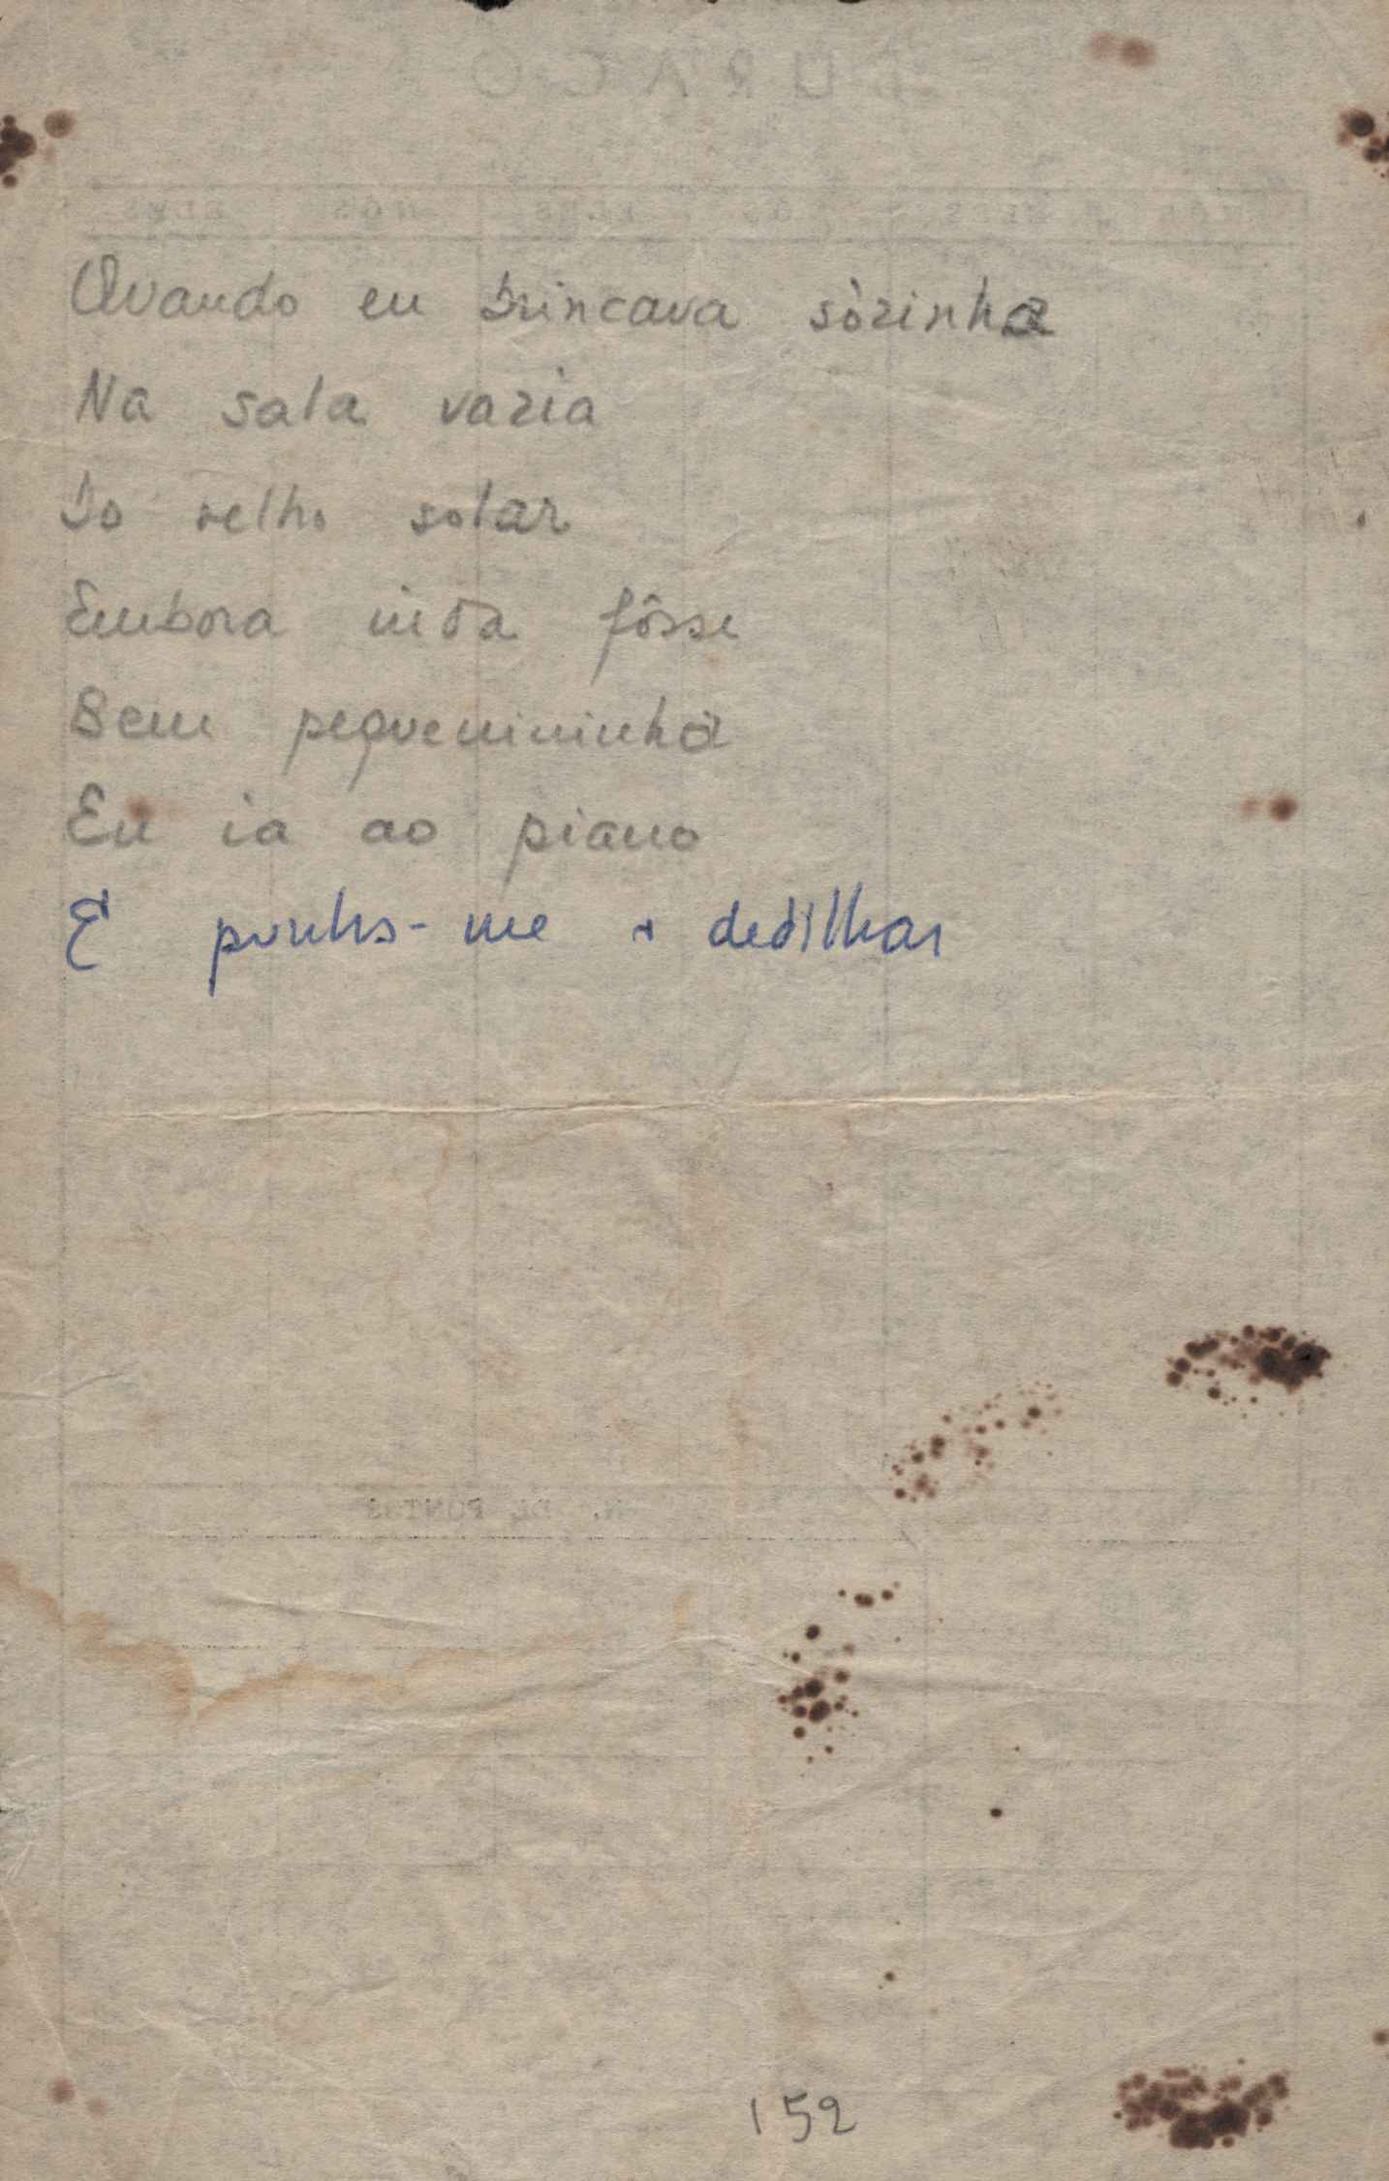 Quando eu brincava sòzinha
Na sala vazia
Do velho solar
Embora inda fôsse
Bem pequenininha
Eu ia ao piano
E punha-me a dedilhar
N. DE PONTOS
152